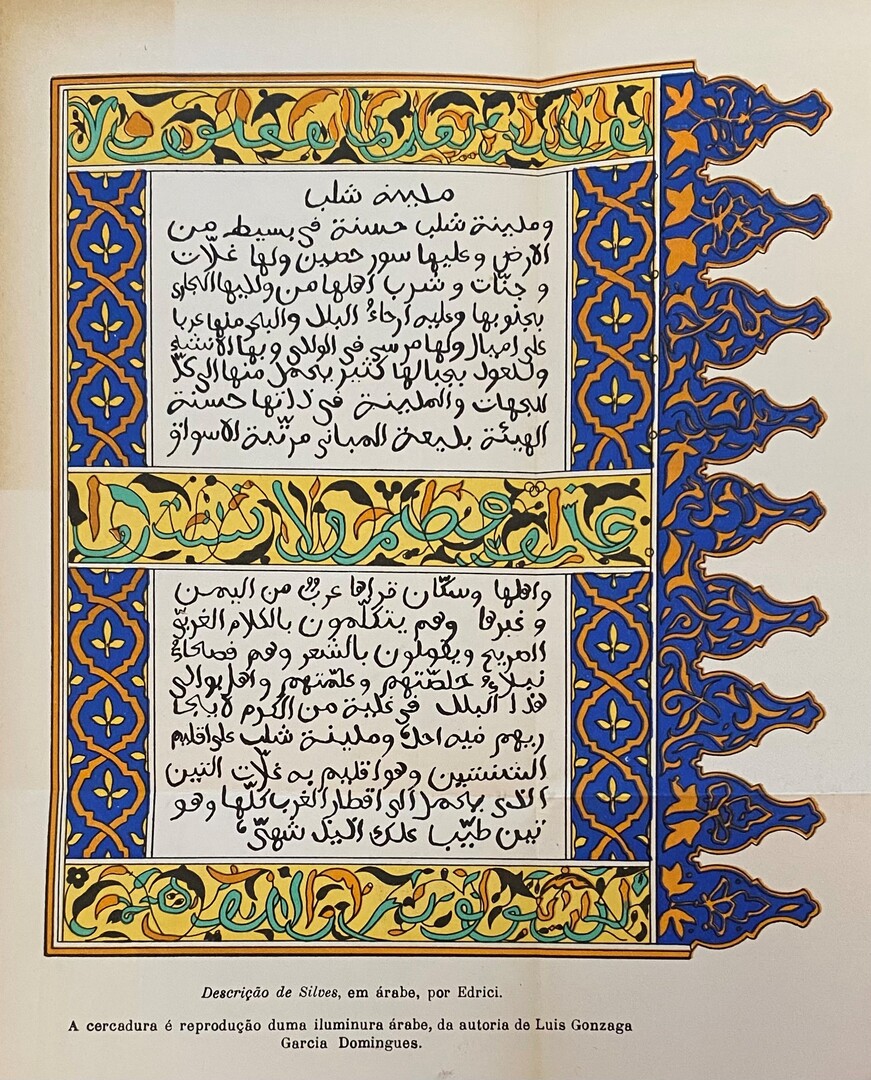 مدينة شلب
ومدينة شلب حسنة في بسيط من
الارض وعليها سور حصين ولها غلّات
و جنّات و شرب اهلها من واديها الجارى
بجنوبها وعليه ارحاءُ البلد والبحر منها غربا
على اميال ولها مرسى في الوادى وبها الانشاء
والعود بجبالها كثير يحمل منها الى كلّ
الجهات والمدينة فى ذاتها حسنة
الهيئة بديعة المبانى مرتّبة الاسواق
واهلها وسكّان قراها عربٌ من اليمن
و غيرها وهم يتكلّمون بالكلام العربىّ
الصريح ويقولون بالشعر وهم فصحاءُ
نبلاءُ خاصّتهم وعامّتهم واهل بوادى
هذا البلد في غاية من الكرم لا يجا
ريهم فيه احدٌ ومدينة شلب على اقليم
الشنشين وهو اقليم به غلّات التين
الذى يحمل الى اقطار الغرب كلّها وهو
تين طيّب علك لذيذ شهىّ
Descrição de Silves, em árabe, por Edrici.
A cercadura é reprodução duma iluminura árabe, da autoria de Luis Gonzaga
Garcia Domingues.